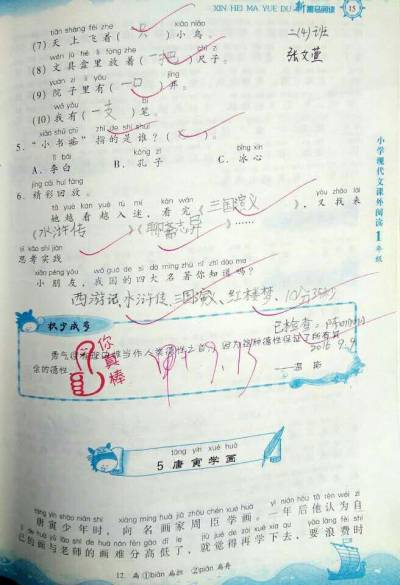 XIN HEI MA YUE DU 新黑马阅读 15
二(4)班
张文萱
小学现代文课外阅读 1年级
tiān shàng fēi zhe xiǎo niǎo
(7) 天上飞着(只)小鸟。
wén jù hé lǐ fàng zhe chǐ zi
(8) 文具盒里放着(一把)尺子。
yuàn zi lǐ yǒu jǐng
(9) 院子里有(一口)井。
wǒ yǒu bǐ
(10) 我有(一支)笔。
xiǎo shū chī zhǐ de shì shuí
5. “小书痴”指的是谁?( )
lǐ bái kǒng zǐ bīng xīn
A. 李白 B. 孔子 C. 冰心
jīng cǎi huí fàng
6. 精彩回放。
tā yuè kàn yuè rù mí kàn wán yòu zhǎo lái
她越看越入迷,看完《三国演义》,又找来
《水浒传》《聊斋志异》……
sī kǎo shí jiàn
思考实践
xiǎo péng yǒu wǒ guó de sì dà míng zhù nǐ zhī dào ma
小朋友,我国的四大名著你知道吗?
西游记、水浒传、三国演义、红楼梦、10分25秒
积少成多
已检查:
2015 9.9
你真棒
甲 9.13
táng yín xué huà
5 唐寅学画
táng yín shào nián shí xiàng míng huà jiā zhōu chén xué huà yì nián hòu tā rèn wéi zì
唐寅少年时,向名画家周臣学画。一年后他认为自
jǐ de huà yǔ lǎo shī de huà nán fēn gāo dī le jiù jué de zài xué xià qù yào làng fèi shí
己的画与老师的画难分高低了,就觉得再学下去,要浪费时
12. 扁 ①biǎn 扁担 ②piān 扁舟